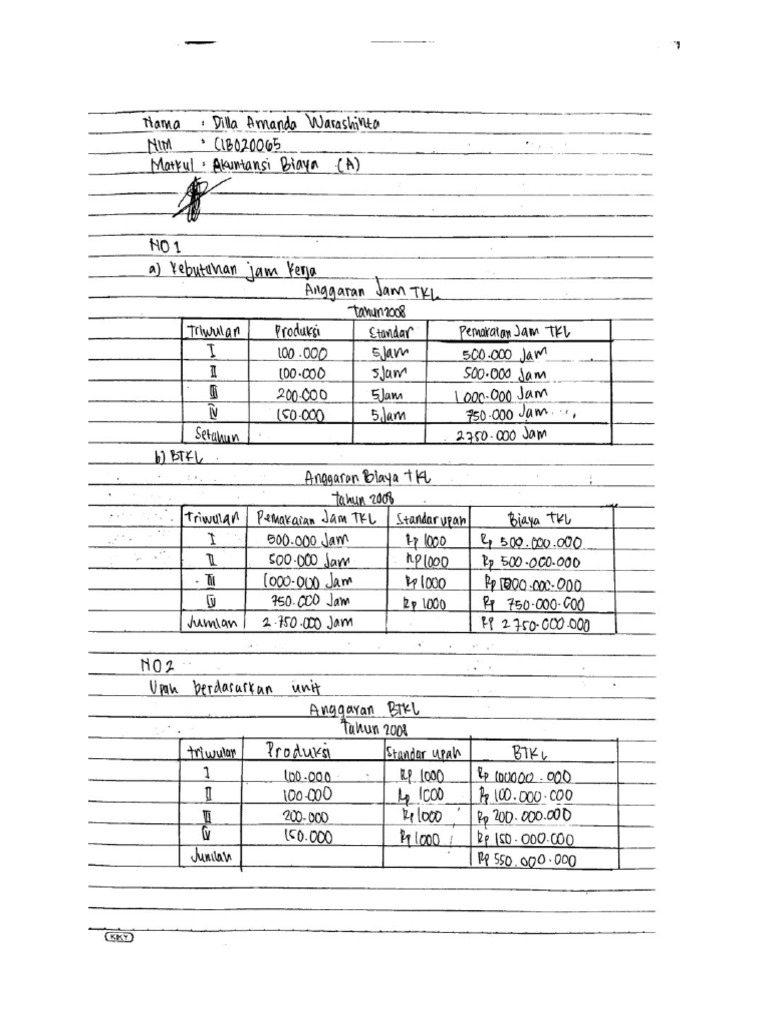 Nama : Dilla Amanda Warashinta
NIM : C1B020065
Matkul : Akuntansi Biaya (A)
NO 1
a) Kebutuhan jam kerja
Anggaran Jam TKL
Tahun 2008
Triwulan Produksi Standar Pemakaian Jam TKL
I 100.000 5 Jam 500.000 Jam
II 100.000 5 Jam 500.000 Jam
III 200.000 5 Jam 1.000.000 Jam
IV 150.000 5 Jam 750.000 Jam
Setahun 2750.000 Jam
b) BTKL
Anggaran Biaya TKL
Tahun 2008
Triwulan Pemakaian Jam TKL Standar upah Biaya TKL
I 500.000 Jam Rp 1000 Rp 500.000.000
II 500.000 Jam Rp 1000 Rp 500.000.000
III 1000.000 Jam Rp 1000 Rp 1000.000.000
IV 750.000 Jam Rp 1000 Rp 750.000.000
Jumlah 2.750.000 Jam Rp 2750.000.000
NO 2
Upah berdasarkan unit
Anggaran BTKL
Tahun 2008
triwulan Produksi Standar upah BTKL
I 100.000 Rp 1000 Rp 100000.000
II 100.000 Rp 1000 Rp 100.000.000
III 200.000 Rp 1000 Rp 200.000.000
IV 150.000 Rp 1000 Rp 150.000.000
Jumlah Rp 550.000.000
KIKY